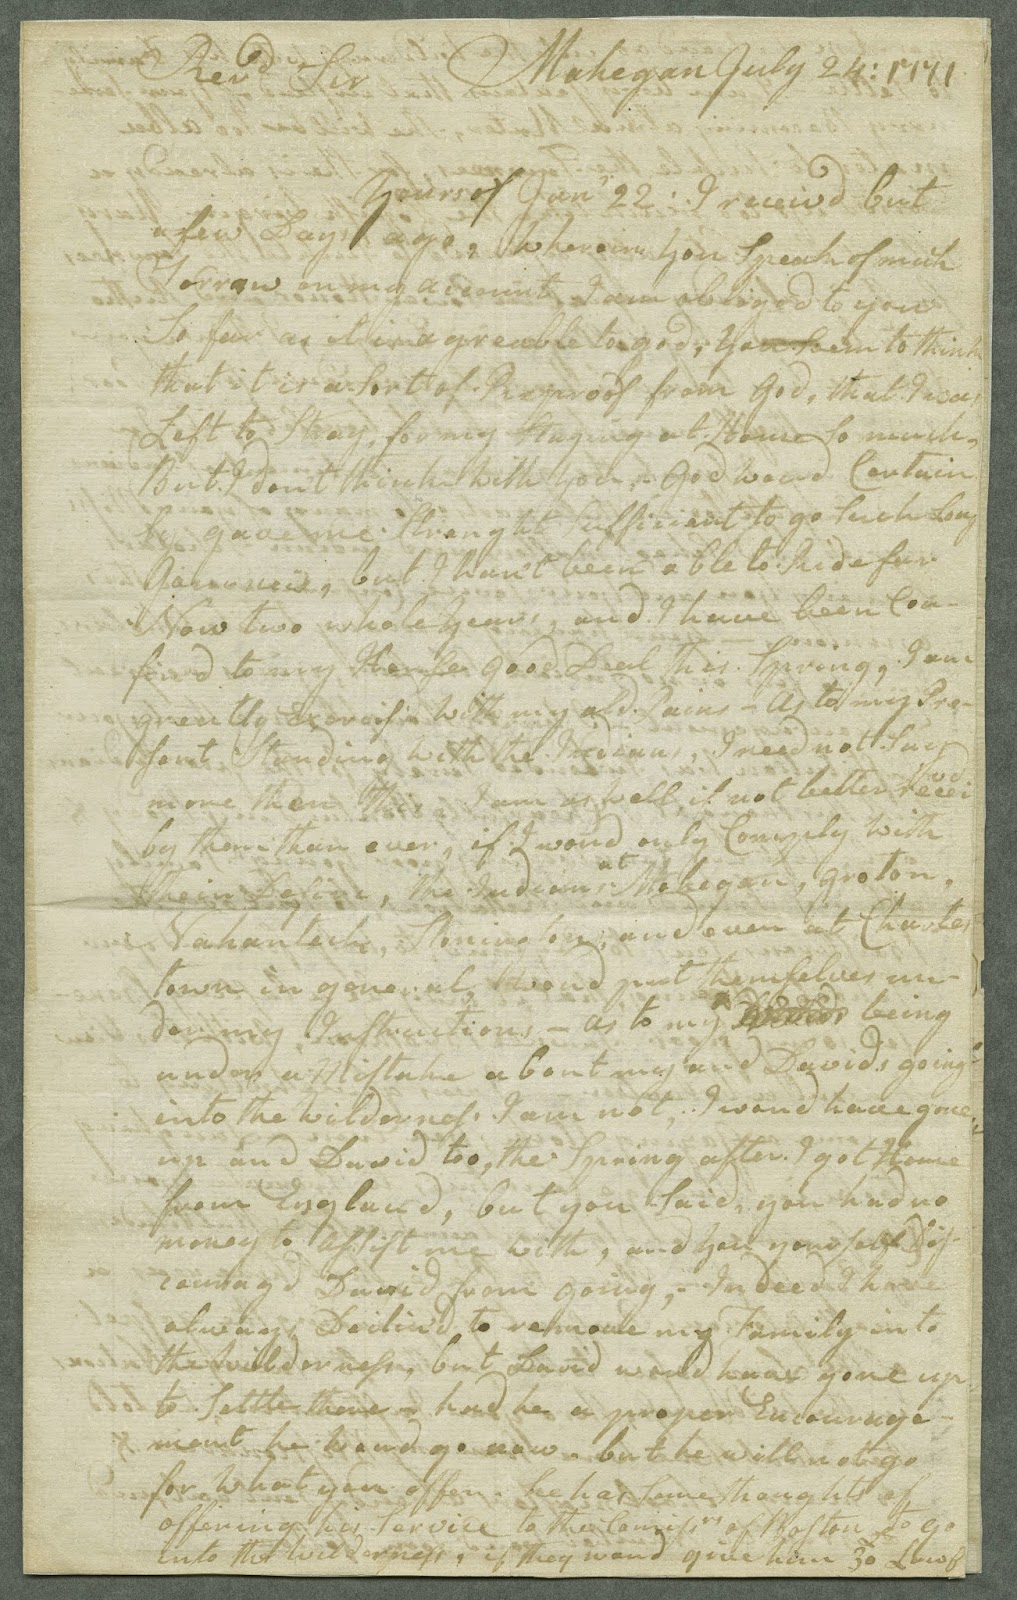 Revd Sir Mohegan July 24: 1771
Yours of Janr 22: I receivd but
a few Days ago, wherein you Speak of much
Sorrow on my account, I am obliged to you
So far as it is agreable to god, you Seem to think
that it is a Sort of Reproof from God, that I was
Left to Stray, for my Staying at Home So much,
But I dont think with you, God woud Certain
ly gave me Strenght Sufficient to go Such Long
but I han't been able to Ride far
Now two whole years, and I have been Con-
find to my House good Deal this Spring, I am
greatly exercisd with my old Pains - As to my Pre-
sent Standing with the Indians, I need not Say
more than this I am as well if not better receivd
by them than ever, if I woud only Comply with
their Desire, the Indians at Mohegan, groton,
Nahantick, Stonington, and even at Charles
town in general, woud put themselves un-
der my Instructions - as to my being
under a Mistake about my and Davids going
into the wilderness I am not, I woud have gone
up and David too, the Spring after I got Home
from England, but you Said, you had no
money to assist me with, and you yourself dis-
couragd David from going, - Indeed I have
always Declind to remove my Family into
the wilderness, but David woud have gone up
to Settle there had he a proper Encourage-
ment he woud go now, but he will not go
for what you offer. he has Some thoughts of
offering his Service to the Comissrs of Boston to go
into the wilderness, if they woud give him 30